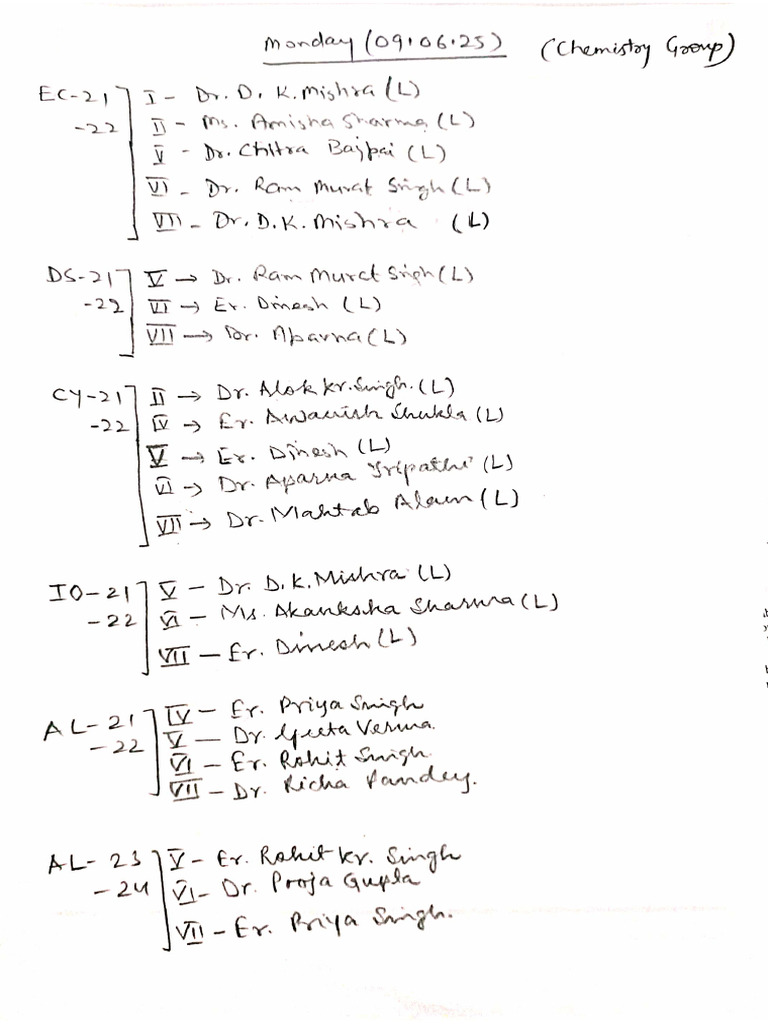 Monday (09.06.25) (Chemistry Group)
EC-21 I - Dr. D. K. Mishra (L)
-22 II - Ms. Amisha Sharma (L)
V - Dr. Chitra Bajpai (L)
VI - Dr. Ram Murat Singh (L)
VII - Dr. D.K. Mishra (L)
DS-21 V → Dr. Ram Murat Singh (L)
-22 VI → Er. Dinesh (L)
VII → Dr. Aparna (L)
CY-21 II → Dr. Alok Kr. Singh. (L)
-22 IV → Er. Awanish Shukla (L)
V → Er. Dinesh (L)
VI → Dr. Aparna Tripathi (L)
VII → Dr. Mahtab Alam (L)
IO-21 V - Dr. D.K. Mishra (L)
-22 VI - Ms. Akanksha Sharma (L)
VII - Er. Dinesh (L)
AL-21 IV - Er. Priya Singh
-22 V - Dr. Geeta Verma.
VI - Er. Rohit Singh.
VII - Dr. Richa Pandey.
AL-23 V - Er. Rohit Kr. Singh
-24 VI - Dr. Pooja Gupta
VII - Er. Priya Singh.